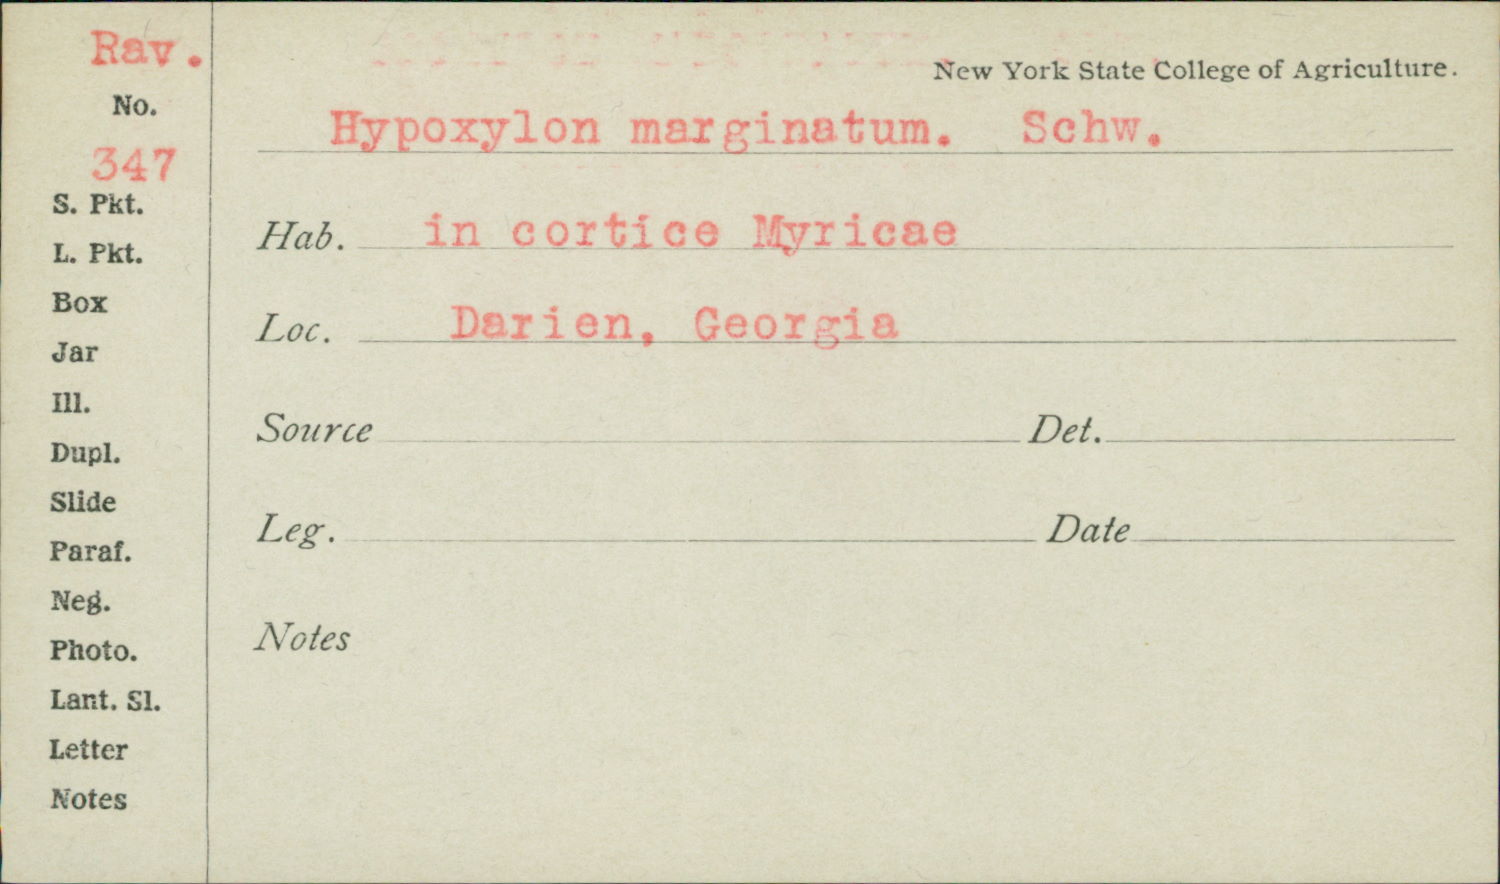 Rav.
No.
347
S. Pkt.
L. Pkt.
Box
Jar
Ill.
Dupl.
Slide
Paraf.
Neg.
Photo.
Lant. Sl.
Letter
Notes
New York State College of Agriculture.
Hypoxylon marginatum. Schw.
Hab. in cortice Myricae
Loc. Darien, Georgia
Source Det.
Leg. Date
Notes